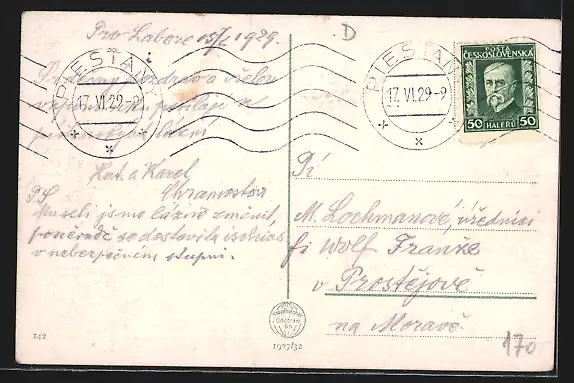 Pro Labore 15/6 1929.
D
PIEŠŤANY
17.VI.29-9
PIEŠŤANY
17.VI.29-9
POŠTA
ČESKOSLOVENSKÁ
50 HALÉŘŮ 50
Srdečný pozdrav a
Hat. a Karel
Chramostovi
P.S.
Museli jsme lázně změnit,
poněvadž se dostavila ischias
v nebezpečném stupni.
Pí
M. Lochmanové, úřednici
fi Wolf Franže
v Prostějově
na Moravě
142
1927/32
170